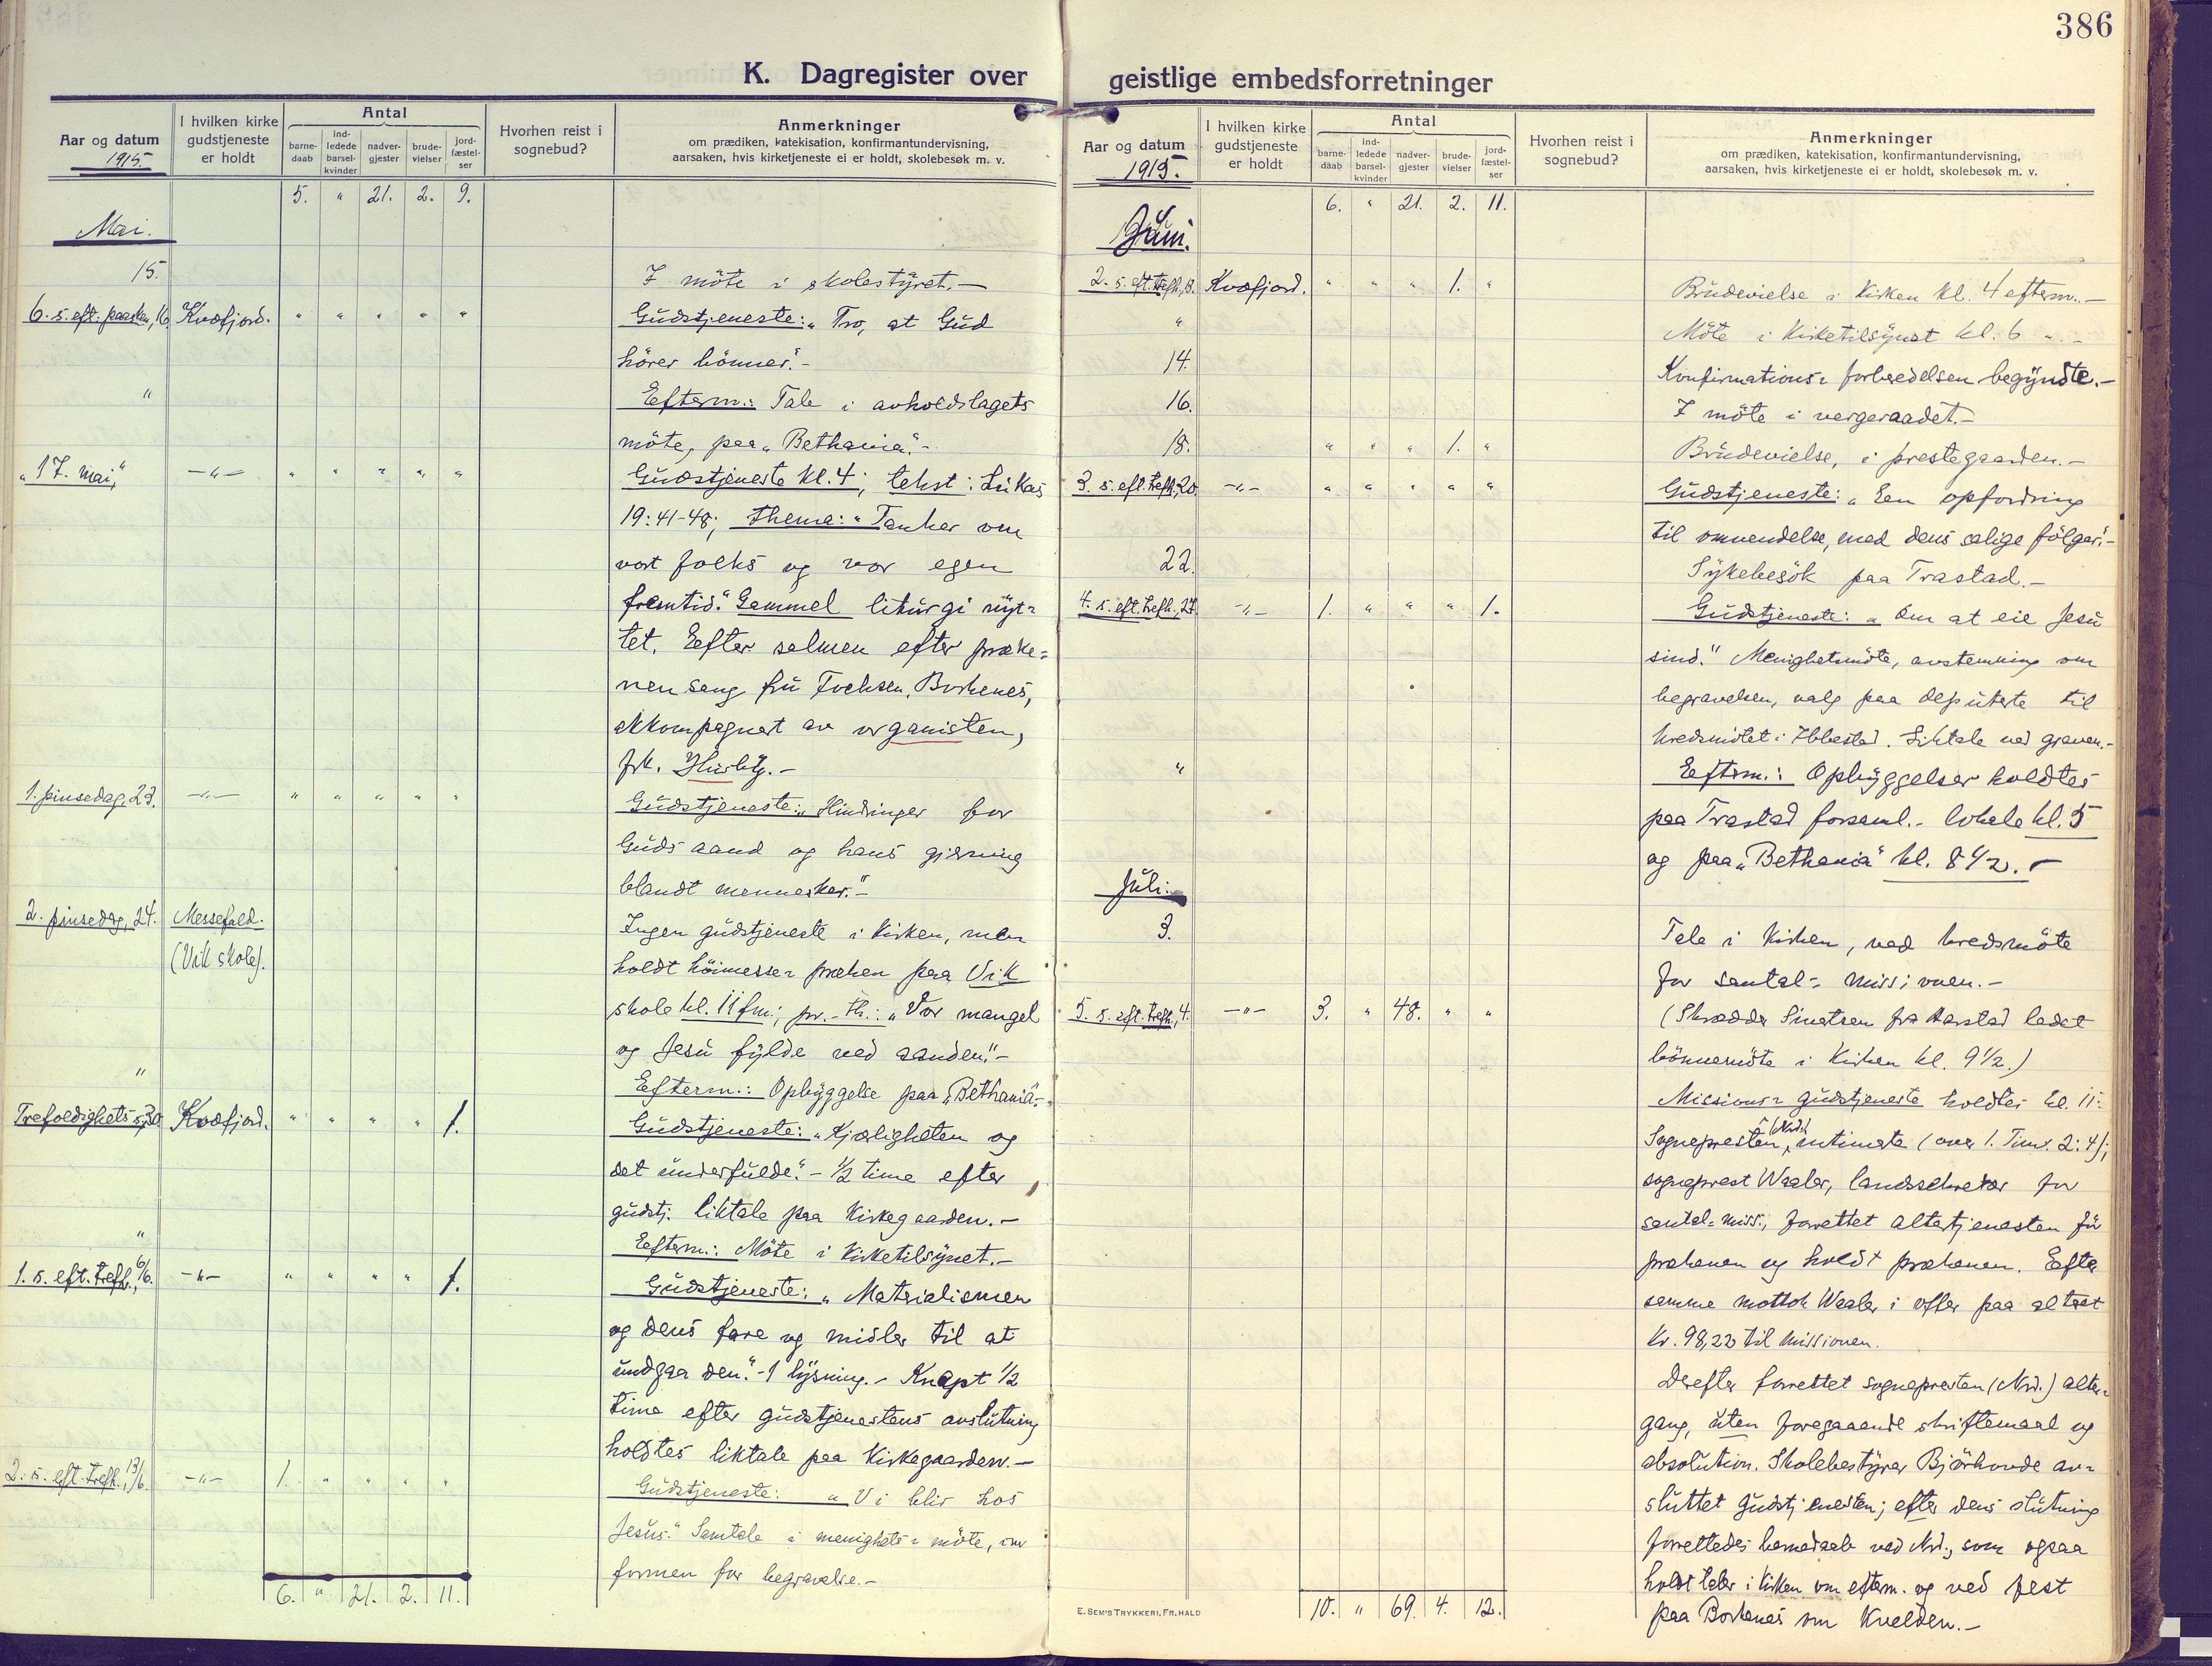 386
K. Dagregister over geistlige embedsforretninger
Aar og datum
1915.
I hvilken kirke
gudstjeneste
er holdt
Antal
barne-
daab
ind-
ledede
barsel-
kvinder
nadver-
gjester
brude-
vielser
jord-
fæstel-
ser
Hvorhen reist i
sognebud?
Anmerkninger
om prædiken, katekisation, konfirmantundervisning,
aarsaken, hvis kirketjeneste ei er holdt, skolebesøk m. v.
5. " 21. 2. 9.
Mai.
15. I möte i skolestyret.-
6. s. eft. paasken, 16 Kvæfjord. " " " " " Gudstjeneste: "Tro, at Gud
hörer bönner."-
" Efterm.: Tale i avholdslagets
möte, paa "Bethania".-
"17. mai," -"- " " " " " Gudstjeneste kl. 4; tekst: Lukas
19:41-48; thema: "Tanker om
vort folks og vor egen
fremtid." Gammel liturgi nyt-
tet. Eefter salmen efter præke-
nen sang fru Fochsen, Borkenes,
akkompagnert av organisten,
frk. Husby.-
1. pinsedag, 23. -"- " " " " " Gudstjeneste: "Hindringer for
Guds aand og hans gjerning
blandt mennesker."-
2. pinsedag, 24. Messefald. Ingen gudstjeneste i kirken, men
(Vik skole). holdt höimesse-præken paa Vik
skole kl. 11 fm.; pr.-th.: "Vor mangel
og Jesu fylde ved aanden."-
" Efterm.: Opbyggelse paa "Bethania".-
Trefoldighets s. 30 Kvæfjord. " " " " 1. Gudstjeneste: "Kjærligheten og
det underfulde."- ½ time efter
gudstj. liktale paa kirkegaarden.-
" Efterm.: Möte i kirketilsynet.-
1. s. eft. trefh., 6/6. -"- " " " " 1. Gudstjeneste: "Materialismen
og dens fare og midler til at
undgaa den."-1 lysning.- Knapt ½
time efter gudstjenestens avslutning
holdtes liktale paa kirkegaarden.-
2. s. eft. trefh., 13/6. -"- 1. " " " " Gudstjeneste: "Vi blir hos
Jesus." Samtale i menighets-möte, om
formen for begravelse.-
6. " 21. 2. 11.
Aar og datum
1915.
I hvilken kirke
gudstjeneste
er holdt
Antal
barne-
daab
ind-
ledede
barsel-
kvinder
nadver-
gjester
brude-
vielser
jord-
fæstel-
ser
Hvorhen reist i
sognebud?
Anmerkninger
om prædiken, katekisation, konfirmantundervisning,
aarsaken, hvis kirketjeneste ei er holdt, skolebesøk m. v.
6. " 21. 2. 11.
Juni.
2. s. eft. trefh., 13. Kvæfjord. " " " 1. " Brudevielse i kirken kl. 4 efterm.-
" Möte i kirketilsynet kl. 6 ".-
14. Konfirmations-forberedelsen begyndte.-
16. I möte i vergeraadet.-
18. " " " 1. " Brudevielse, i prestegaarden.-
3. s. eft. trefh., 20. -"- " " " " " Gudstjeneste: "Een opfordring
til omvendelse, med dens salige fölger."-
22. Sykebesök paa Trastad.-
4. s. eft. trefh., 27. -"- 1. " " " 1. Gudstjeneste: "Om at eie Jesu
sind." Menighetsmöte, avstemning om
begravelsen, valg paa deputerte til
kredsmötet i Ibbestad. Liktale ved graven.-
" Eefterm.: Opbyggelser holdtes
paa Trastad forsaml.-lokale kl. 5
og paa "Bethania" kl. 8½.-
Juli.
3. Tale i kirken, ved kredsmöte
for santal-missionen.-
(Skrædder Simetsen fra Harstad ledet
bönnemöte i kirken kl. 9½.)
5. s. eft. trefh., 4. -"- 3. " 48. " " Missions-gudstjeneste holdtes kl. 11:
Sognepresten (Nrd.) intimerte (over 1. Tim. 2:4);
sogneprest Waaler, landssekretær for
santal-miss., forrettet altertjenesten för
prækenen og holdt prækenen. Efter
samme mottok Waaler i offer paa alteret
kr. 98,22 til missionen.
Derefter forrettet sognepresten (Nrd.) alter-
gang, uten foregaaende skriftemaal og
absolution. Skolebestyrer Björhovde av-
sluttet gudstjenesten; efter dens slutning
forrettedes barnedaab ved Nrd., som ogsaa
holdt taler i kirken om efterm. og ved fest
paa Borkenes om kvelden.-
10. " 69. 4. 12.
E. SEM'S TRYKKERI, FR.HALD